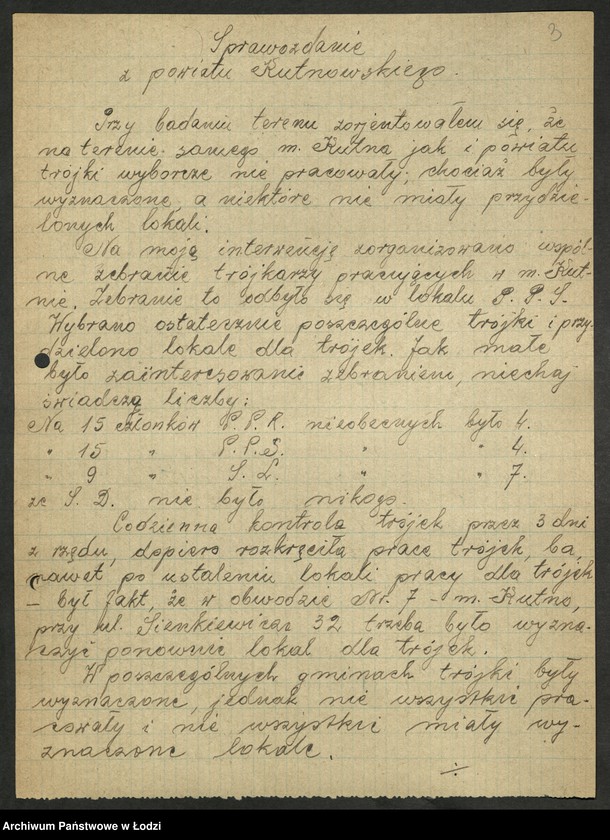 3
Sprawozdanie
z powiatu Kutnowskiego.
Przy badaniu terenu zorjentowałem się, że
na terenie samego m. Kutna jak i powiatu
trójki wyborcze nie pracowały, chociaż były
wyznaczone, a niektóre nie miały przydzie-
lonych lokali.
Na moją interwencję zorganizowano wspól-
ne zebranie trójkarzy pracujących w m. Kut-
nie. Zebranie to odbyło się w lokalu P. P. S.
Wybrano ostatecznie poszczególne trójki i przy-
dzielono lokale dla trójek. Jak małe
było zainteresowanie zebraniem, niechaj
świadczą liczby:
Na 15 członków P. P. R. nieobecnych było 4.
" 15 " P. P. S. " " 4.
" 9 " S. L. " " 7.
ze S. D. nie było nikogo.
Codzienna kontrola trójek przez 3 dni
z rzędu, dopiero rozkręciła pracę trójek, ba,
nawet po ustaleniu lokali pracy dla trójek
- był fakt, że w obwodzie Nr. 7 - m. Kutno,
przy ul. Sienkiewicza 32 trzeba było wyzna-
czyć ponownie lokal dla trójek.
W poszczególnych gminach trójki były
wyznaczone, jednak nie wszystkie pra-
cowały i nie wszystkie miały wy-
znaczone lokale.
÷
Archiwum Państwowe w Łodzi